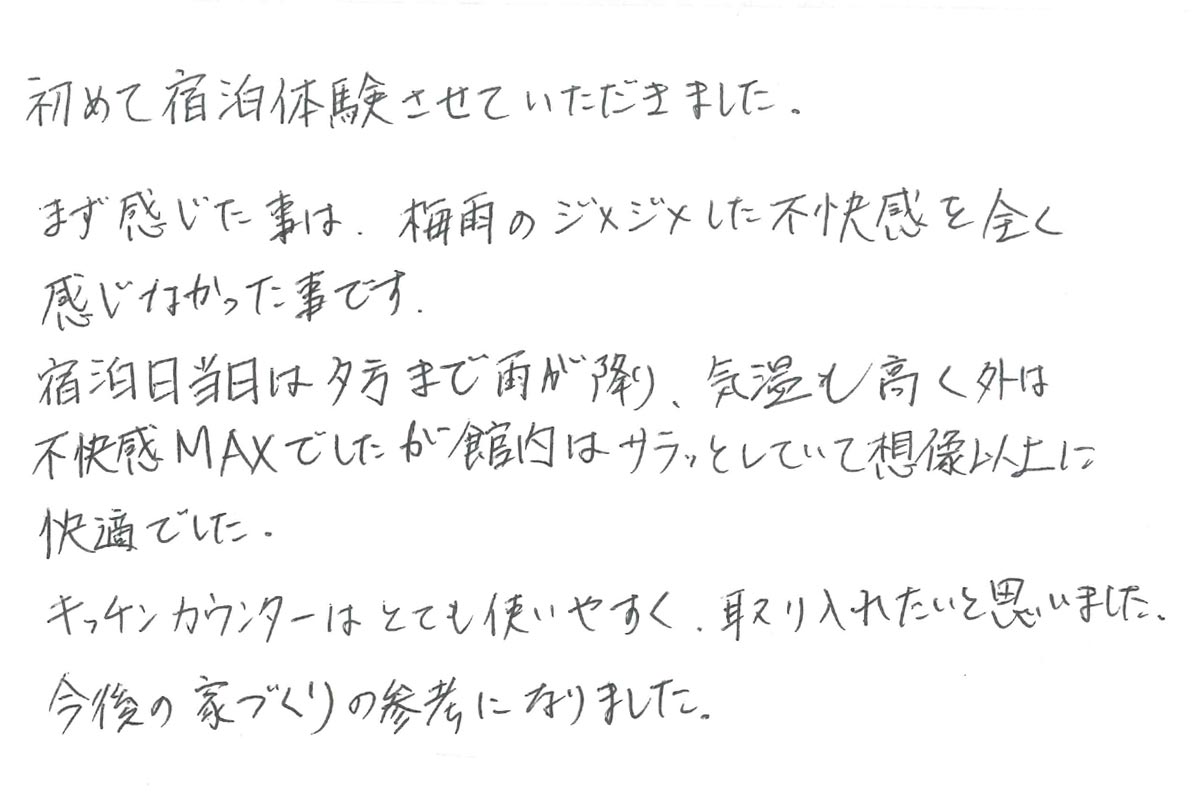 初めて宿泊体験させていただきました。
まず感じた事は、梅雨のジメジメした不快感を全く
感じなかった事です。
宿泊日当日は夕方まで雨が降り、気温も高く外は
不快感MAXでしたが館内はサラッとしていて想像以上に
快適でした。
キッチンカウンターはとても使いやすく、取り入れたいと思いました。
今後の家づくりの参考になりました。